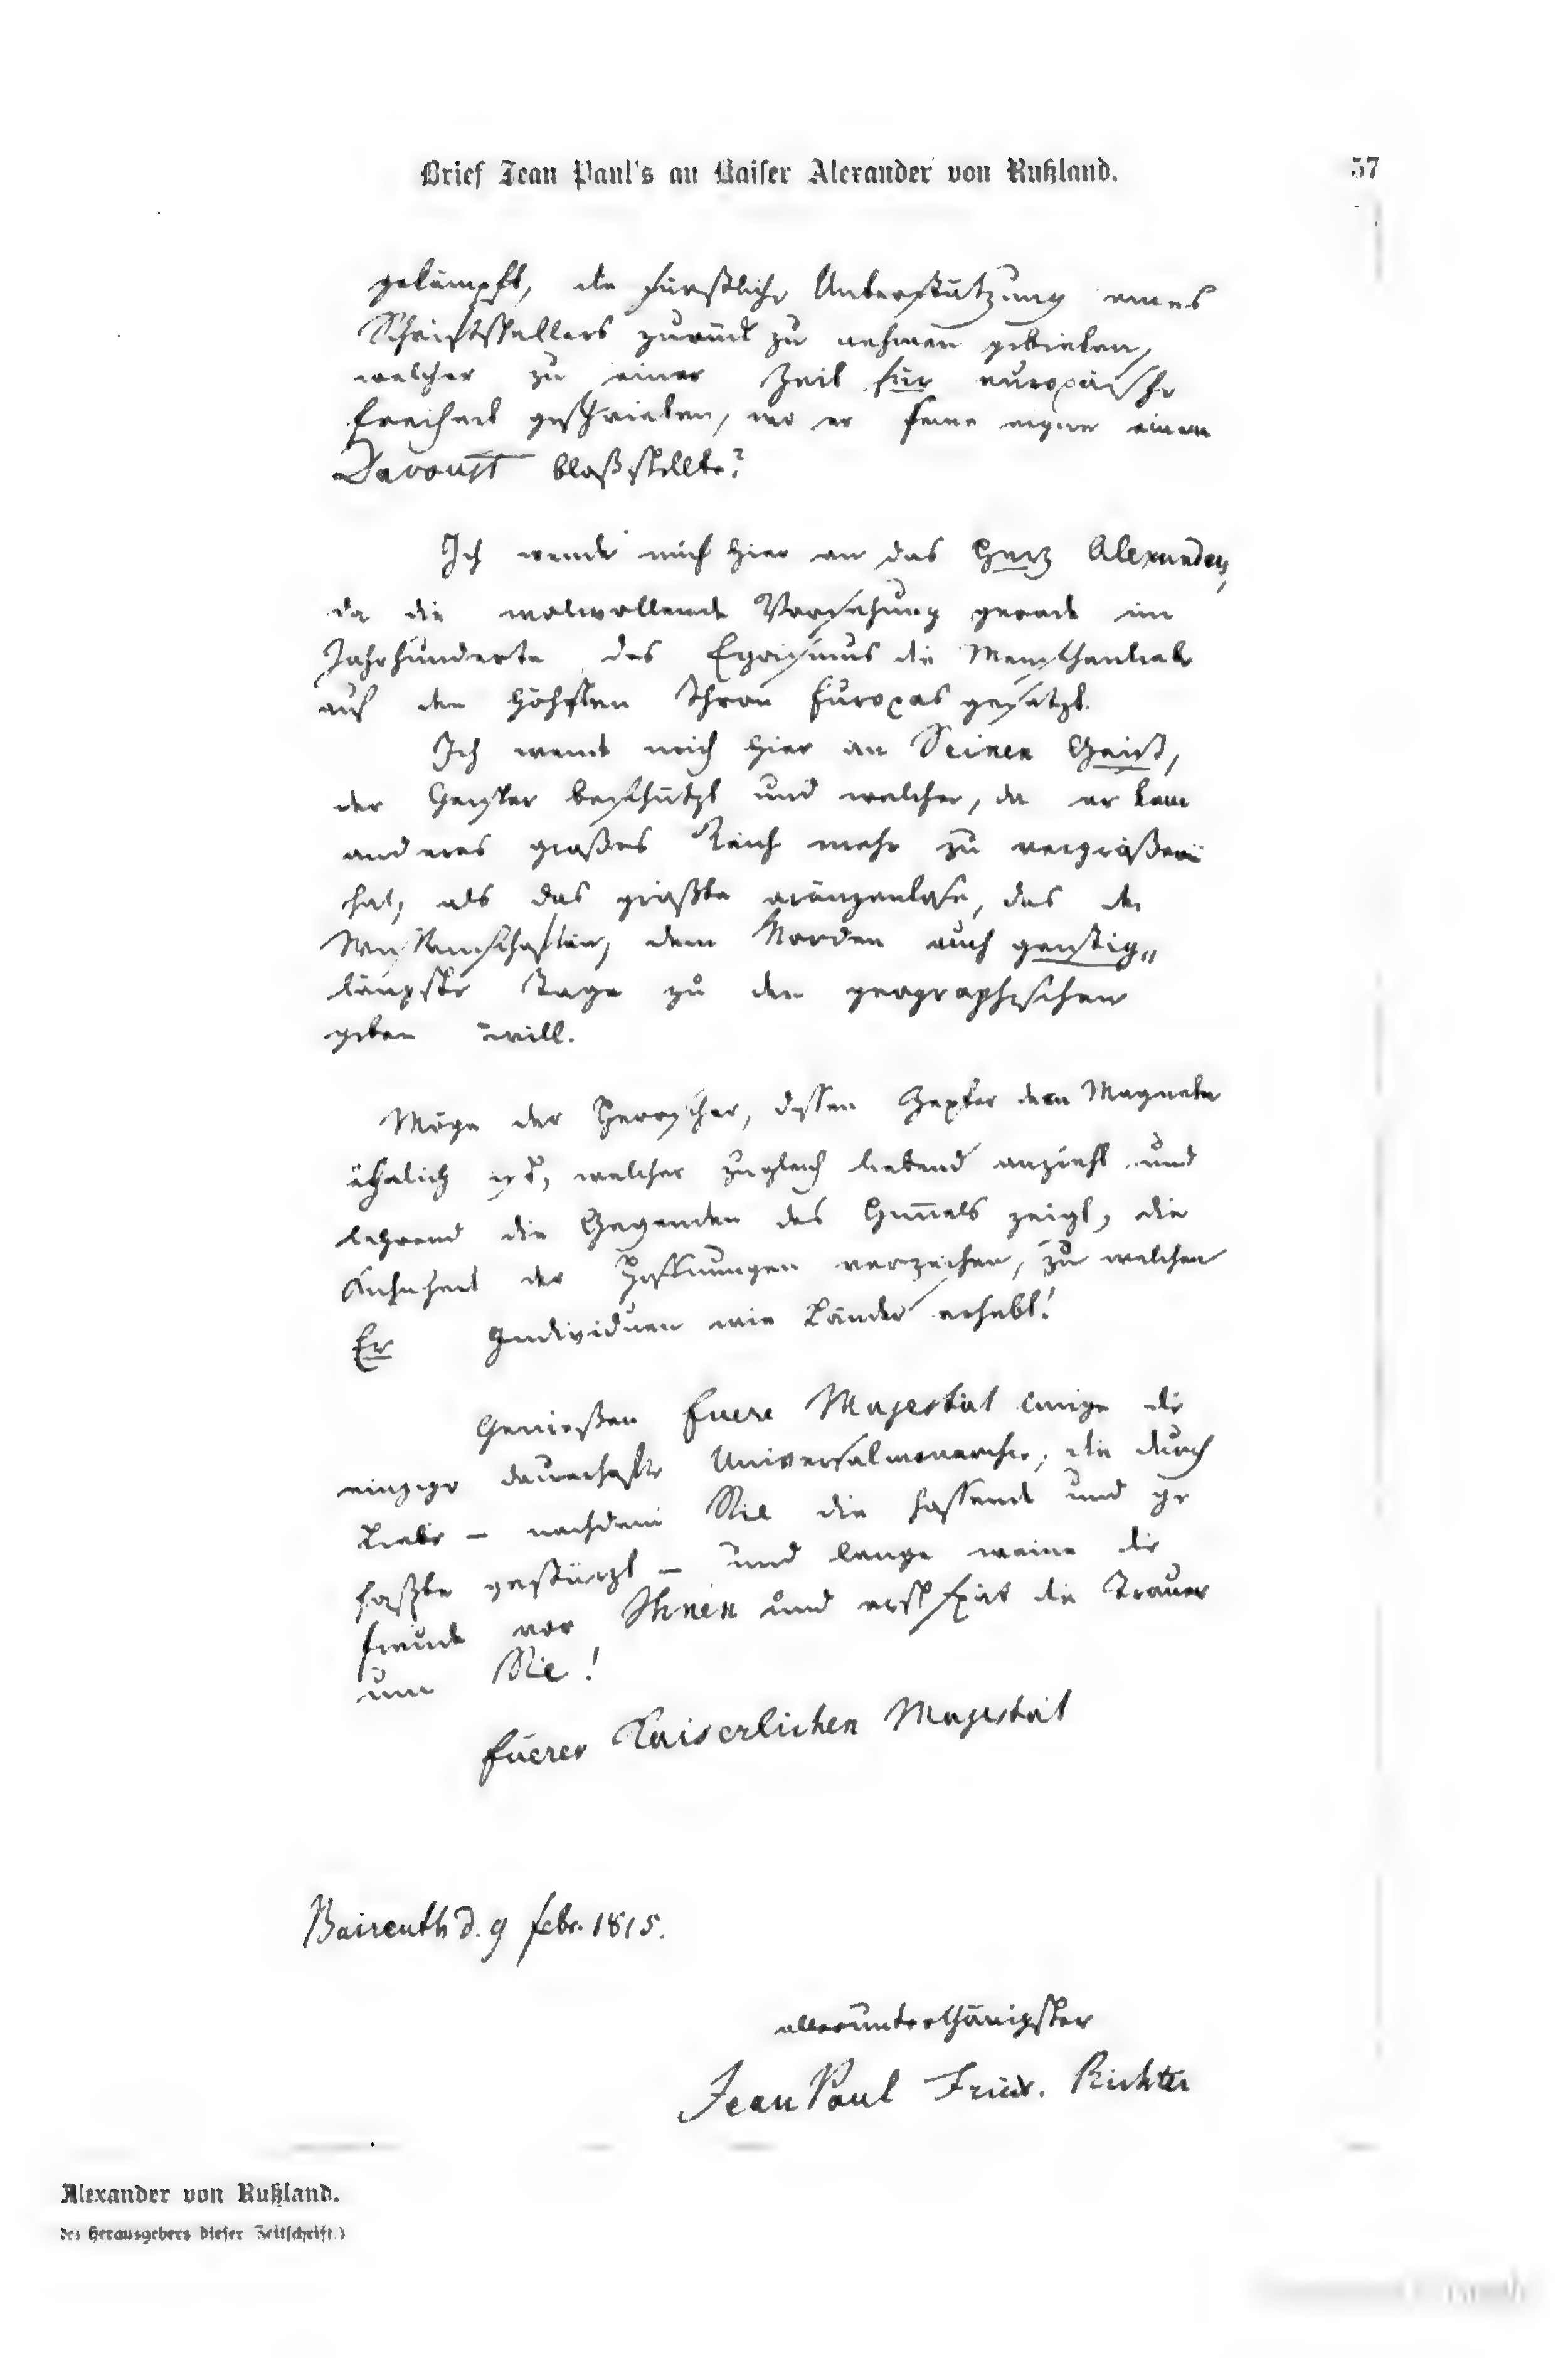 Brief Jean Paul's an Kaiser Alexander von Rußland.
57
gekämpft, die fürstliche Unterstützung eines
Schriftstellers zurück zu nehmen gebieten,
welcher zu einer Zeit für europäische
Freiheit geschrieben, wo er seine eigne einem
Davoust bloßstellte?
Ich wende mich hier an das Herz Alexanders,
da die wolwollende Vorsehung gerade im
Jahrhunderte des Egoismus die Menschenliebe
auf den höchsten Thron Europas gesetzt.
Ich wende mich hier an Seinen Geist,
der Geister beschützt und welcher, da er kein
anderes großes Reich mehr zu vergrößern
hat, als das größte gränzenlose, das der
Wissenschaften, dem Norden auch geistig„
längste Tage zu den geographischen
geben will.
Möge der Herrscher, dessen Zepter dem Magnete
ähnlich ist, welcher zugleich liebend anzieht und
lehrend die Gegenden des Himels zeigt, die
Kühnheit der Hoffnungen verzeihen, zu welchen
Er Individuen wie Länder erhebt!
Genießen Euere Majestät lange die
einzige dauerhafte Universalmonarchie, die durch
Liebe – nachdem Sie die hassende und ge
haßte gestürzt – und lange weine die
Freude vor Ihnen und erst spät die Trauer
um Sie!
Euerer Kaiserlichen Majestät
Baireuth d. 9 Febr. 1815.
allerunterthänigster
Jean Paul Friedr. Richter
Alexander von Rußland.
des Herausgebers dieser Zeitschrift.)